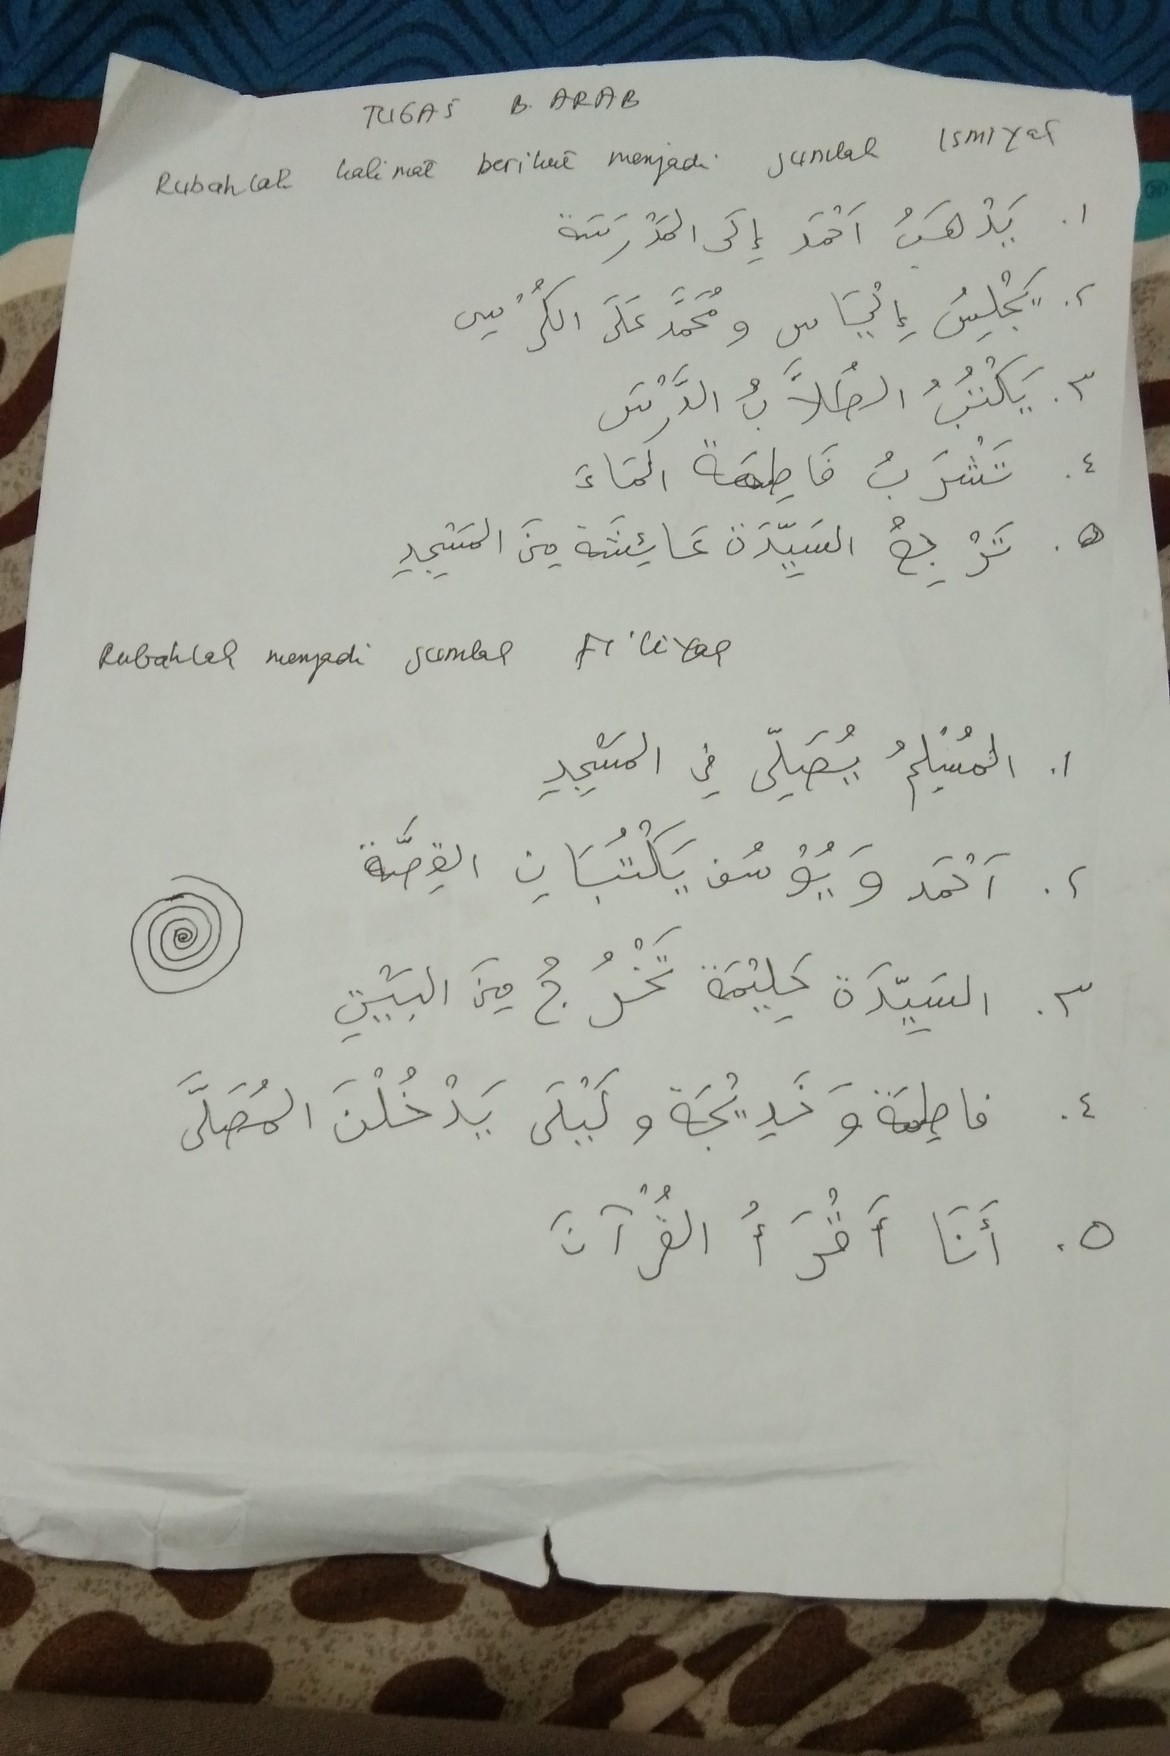 TUGAS B. ARAB
Rubahlah kalimat berikut menjadi jumlah Ismiyah
١. يَذْهَبُ اَحْمَد إِلَى المَدْرَسَة
٢. يَجْلِسُ إِلْيَاس و مُحَمَّد عَلَى الكُرْسِي
٣. يَكْتُبُ الطُلاَّبُ الدَّرْسَ
٤. تَشْرَبُ فَاطِمَة المَاءَ
٥. تَرْجِعُ السَيِّدَة عَائِشَة مِنَ المَسْجِدِ
Rubahlah menjadi jumlah Fi'liyah
١. المُسْلِمُ يُصَلِّى فِي المَسْجِدِ
٢. اَحْمَد وَ يُوْسُف يَكْتُبَانِ القِصَّة
٣. السَيِّدَة حَلِيْمَة تَخْرُجُ مِنَ البَيْتِ
٤. فاطِمَة وَ خَدِيْجَة و لَيْلَى يَدْخُلْنَ المُصَلَّى
٥. أَنَا أَقْرَأُ القُرْآنَ